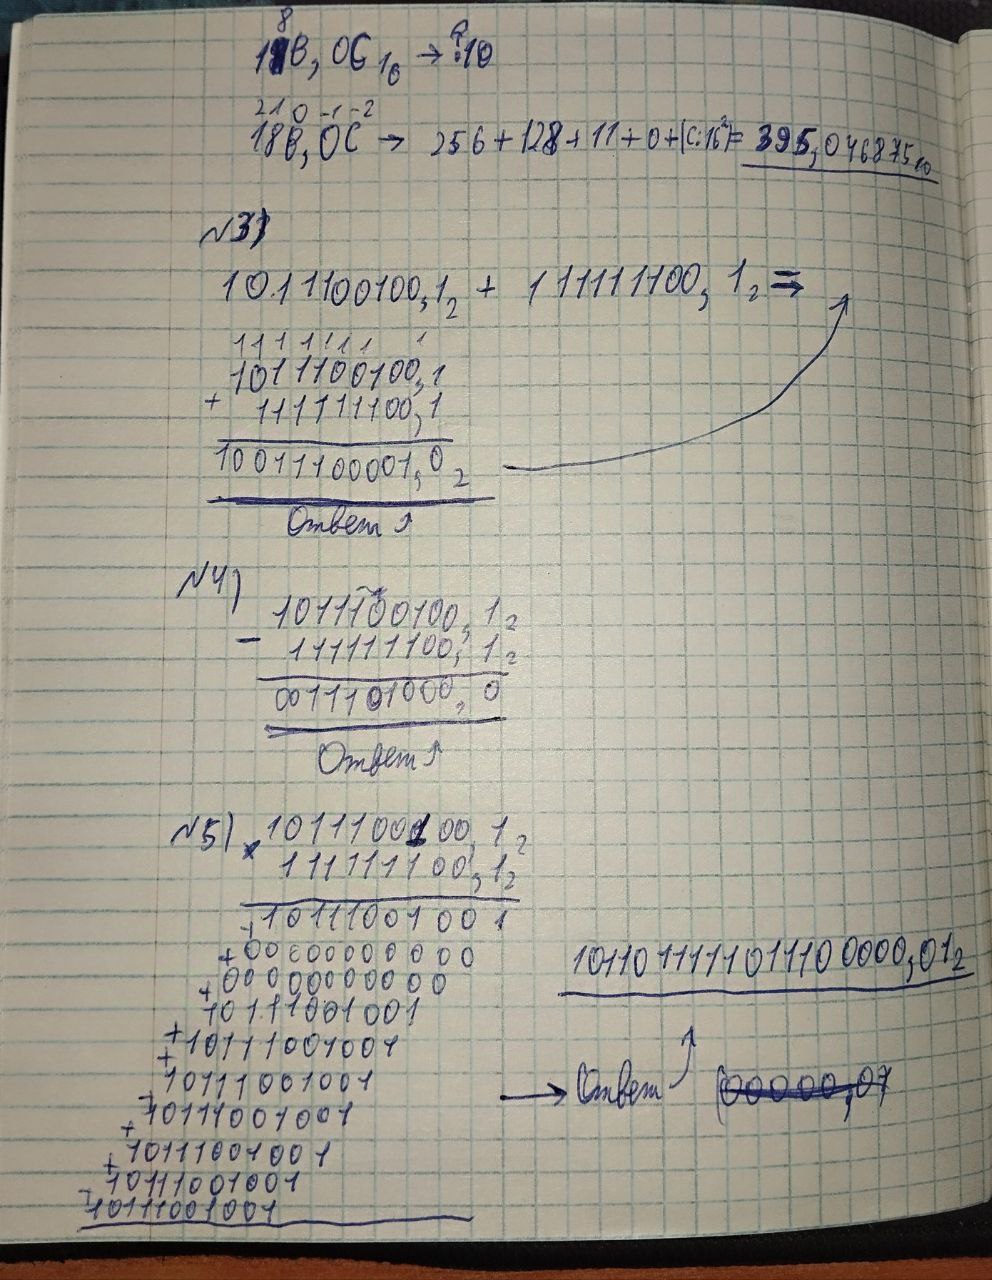 8
18B, 0C₁₆ → ?₁₀
2 1 0 -1 -2
18B, 0C → 256 + 128 + 11 + 0 + (C·16⁻²) = 395,046875₁₀
N3)
1011100100,1₂ + 111111100,1₂ =
1 1 1 1 1 1 1 1
1011100100,1
+ 111111100,1
10011100001,0₂
Ответ
N4)
1011100100,1₂
- 111111100,1₂
0011101000,0
Ответ
N5)
1011100100,1₂
× 111111100,1₂
10111001001
+ 00000000000
+ 00000000000
+ 10111001001
+ 10111001001
+ 10111001001
+ 10111001001
+ 10111001001
+ 10111001001
+ 10111001001
1011011111011100000,01₂
→ Ответ